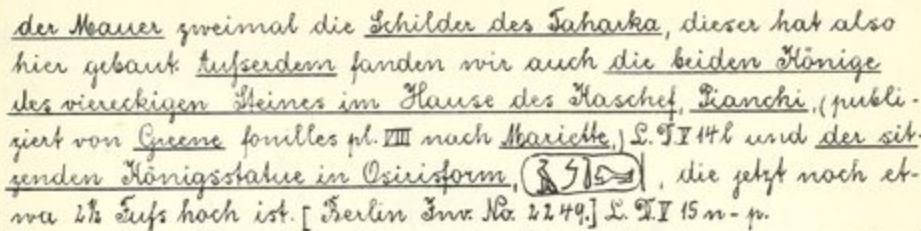 der Mauer zweimal die Schilder des Taharka, dieser hat also
hier gebaut. Aufserdem fanden wir auch die beiden Könige
des viereckigen Steines im Hause des Kaschef, Pianchi, (publi-
ziert von Greene fouilles pl. VIII nach Mariette,) L. D. V 14 l und der sit-
zenden Königsstatue in Osirisform, , die jetzt noch et-
wa 2½ Fufs hoch ist. [Berlin Inv. No. 2249.] L. D. V 15 n-p.